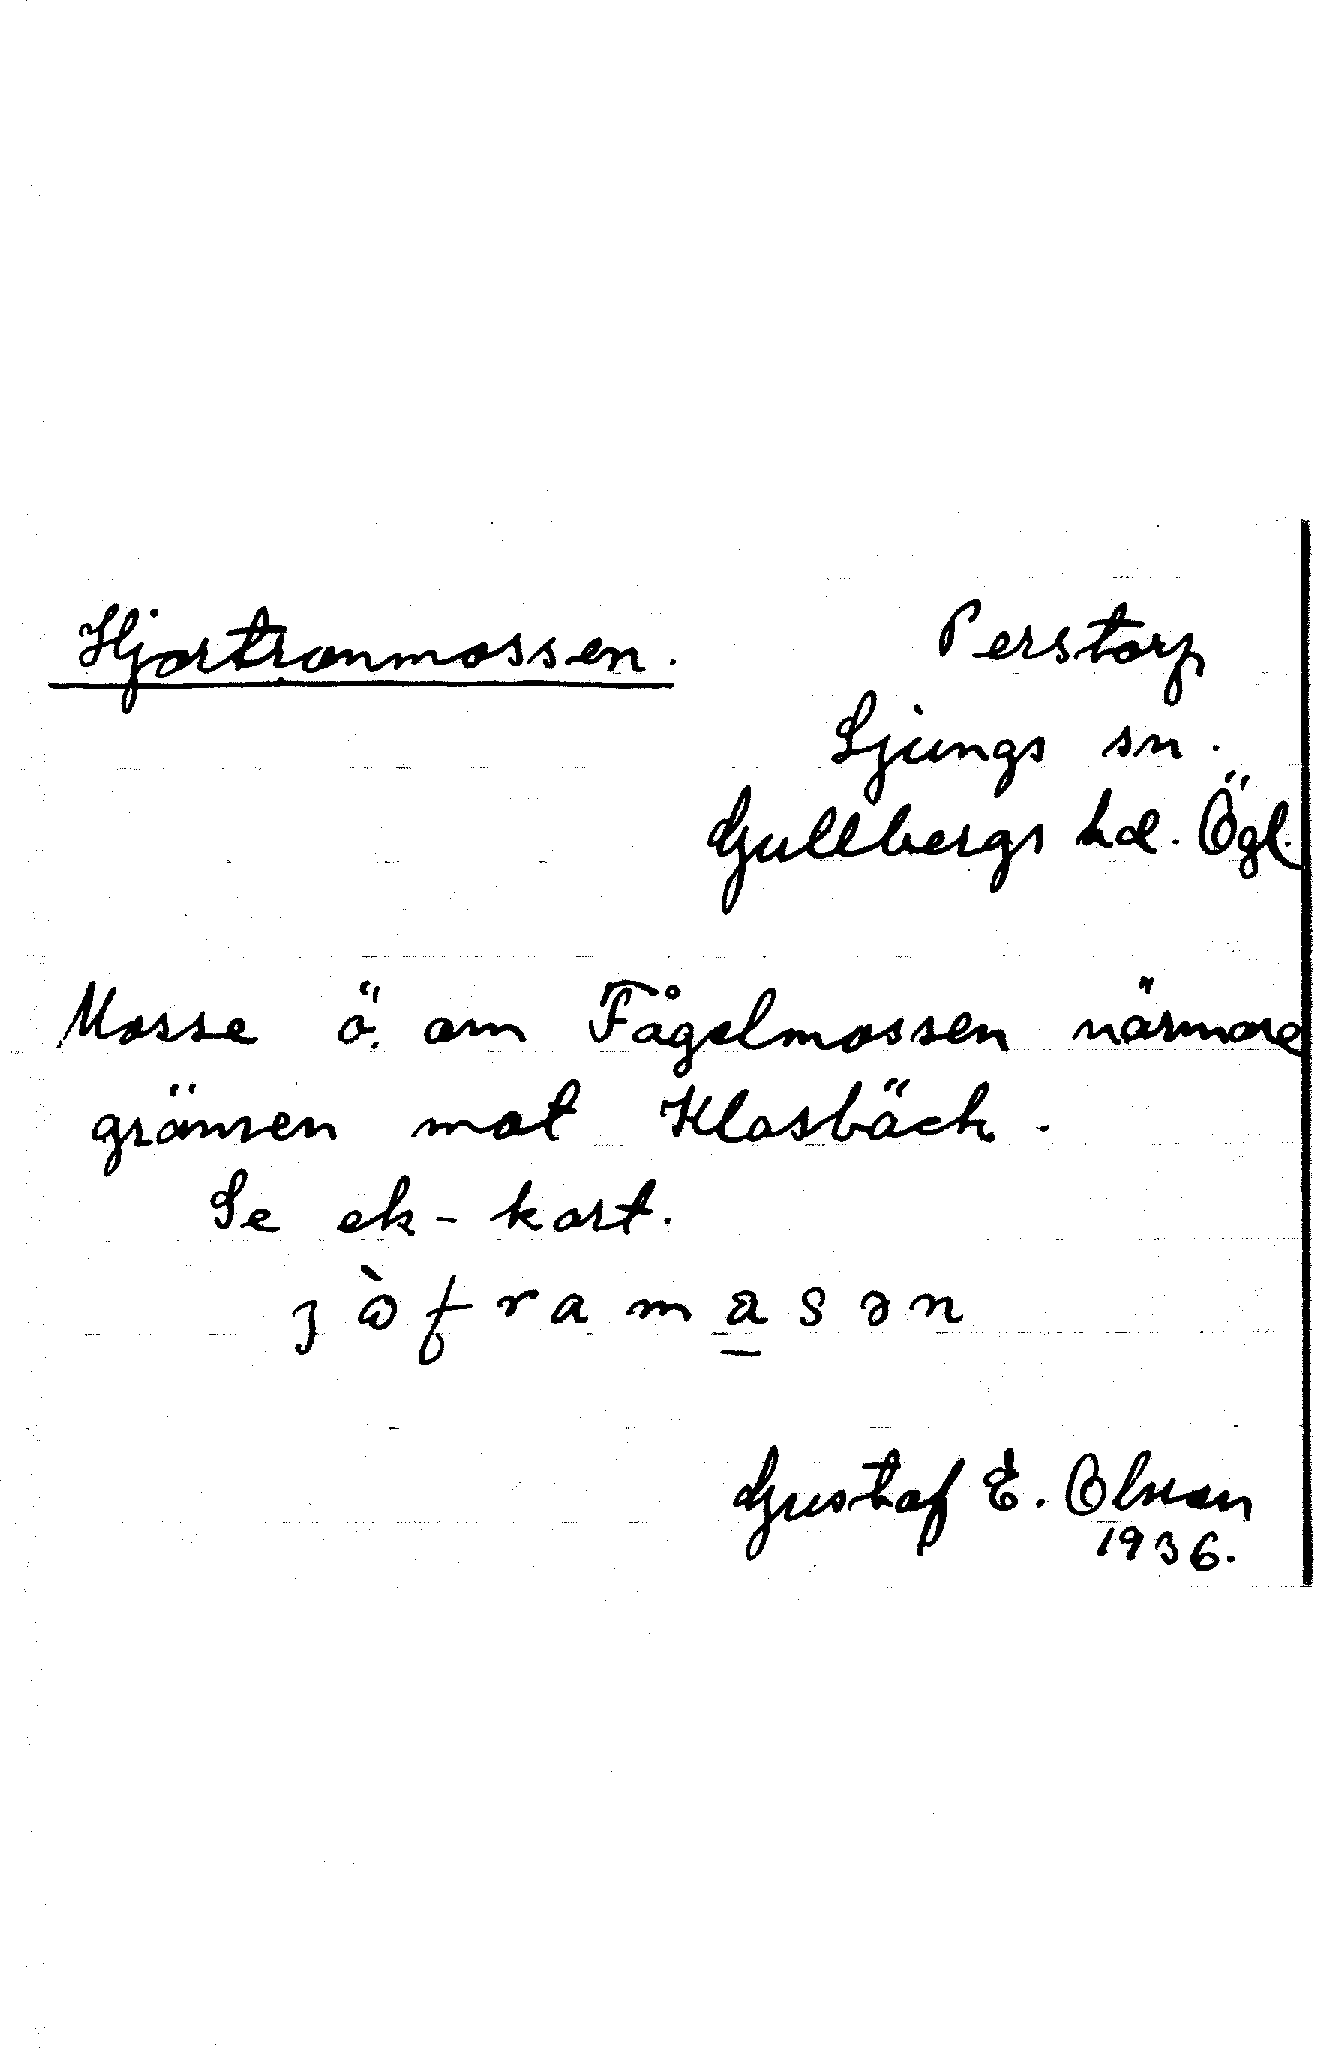 Hjortronmossen.
Perstorp
Ljungs sn.
Gullbergs hd. Ögl.
Mosse ö. om Fågelmossen närmare
gränsen mot Klasbäck.
Se ek-kart.
Gustaf E. Olsson
1936.